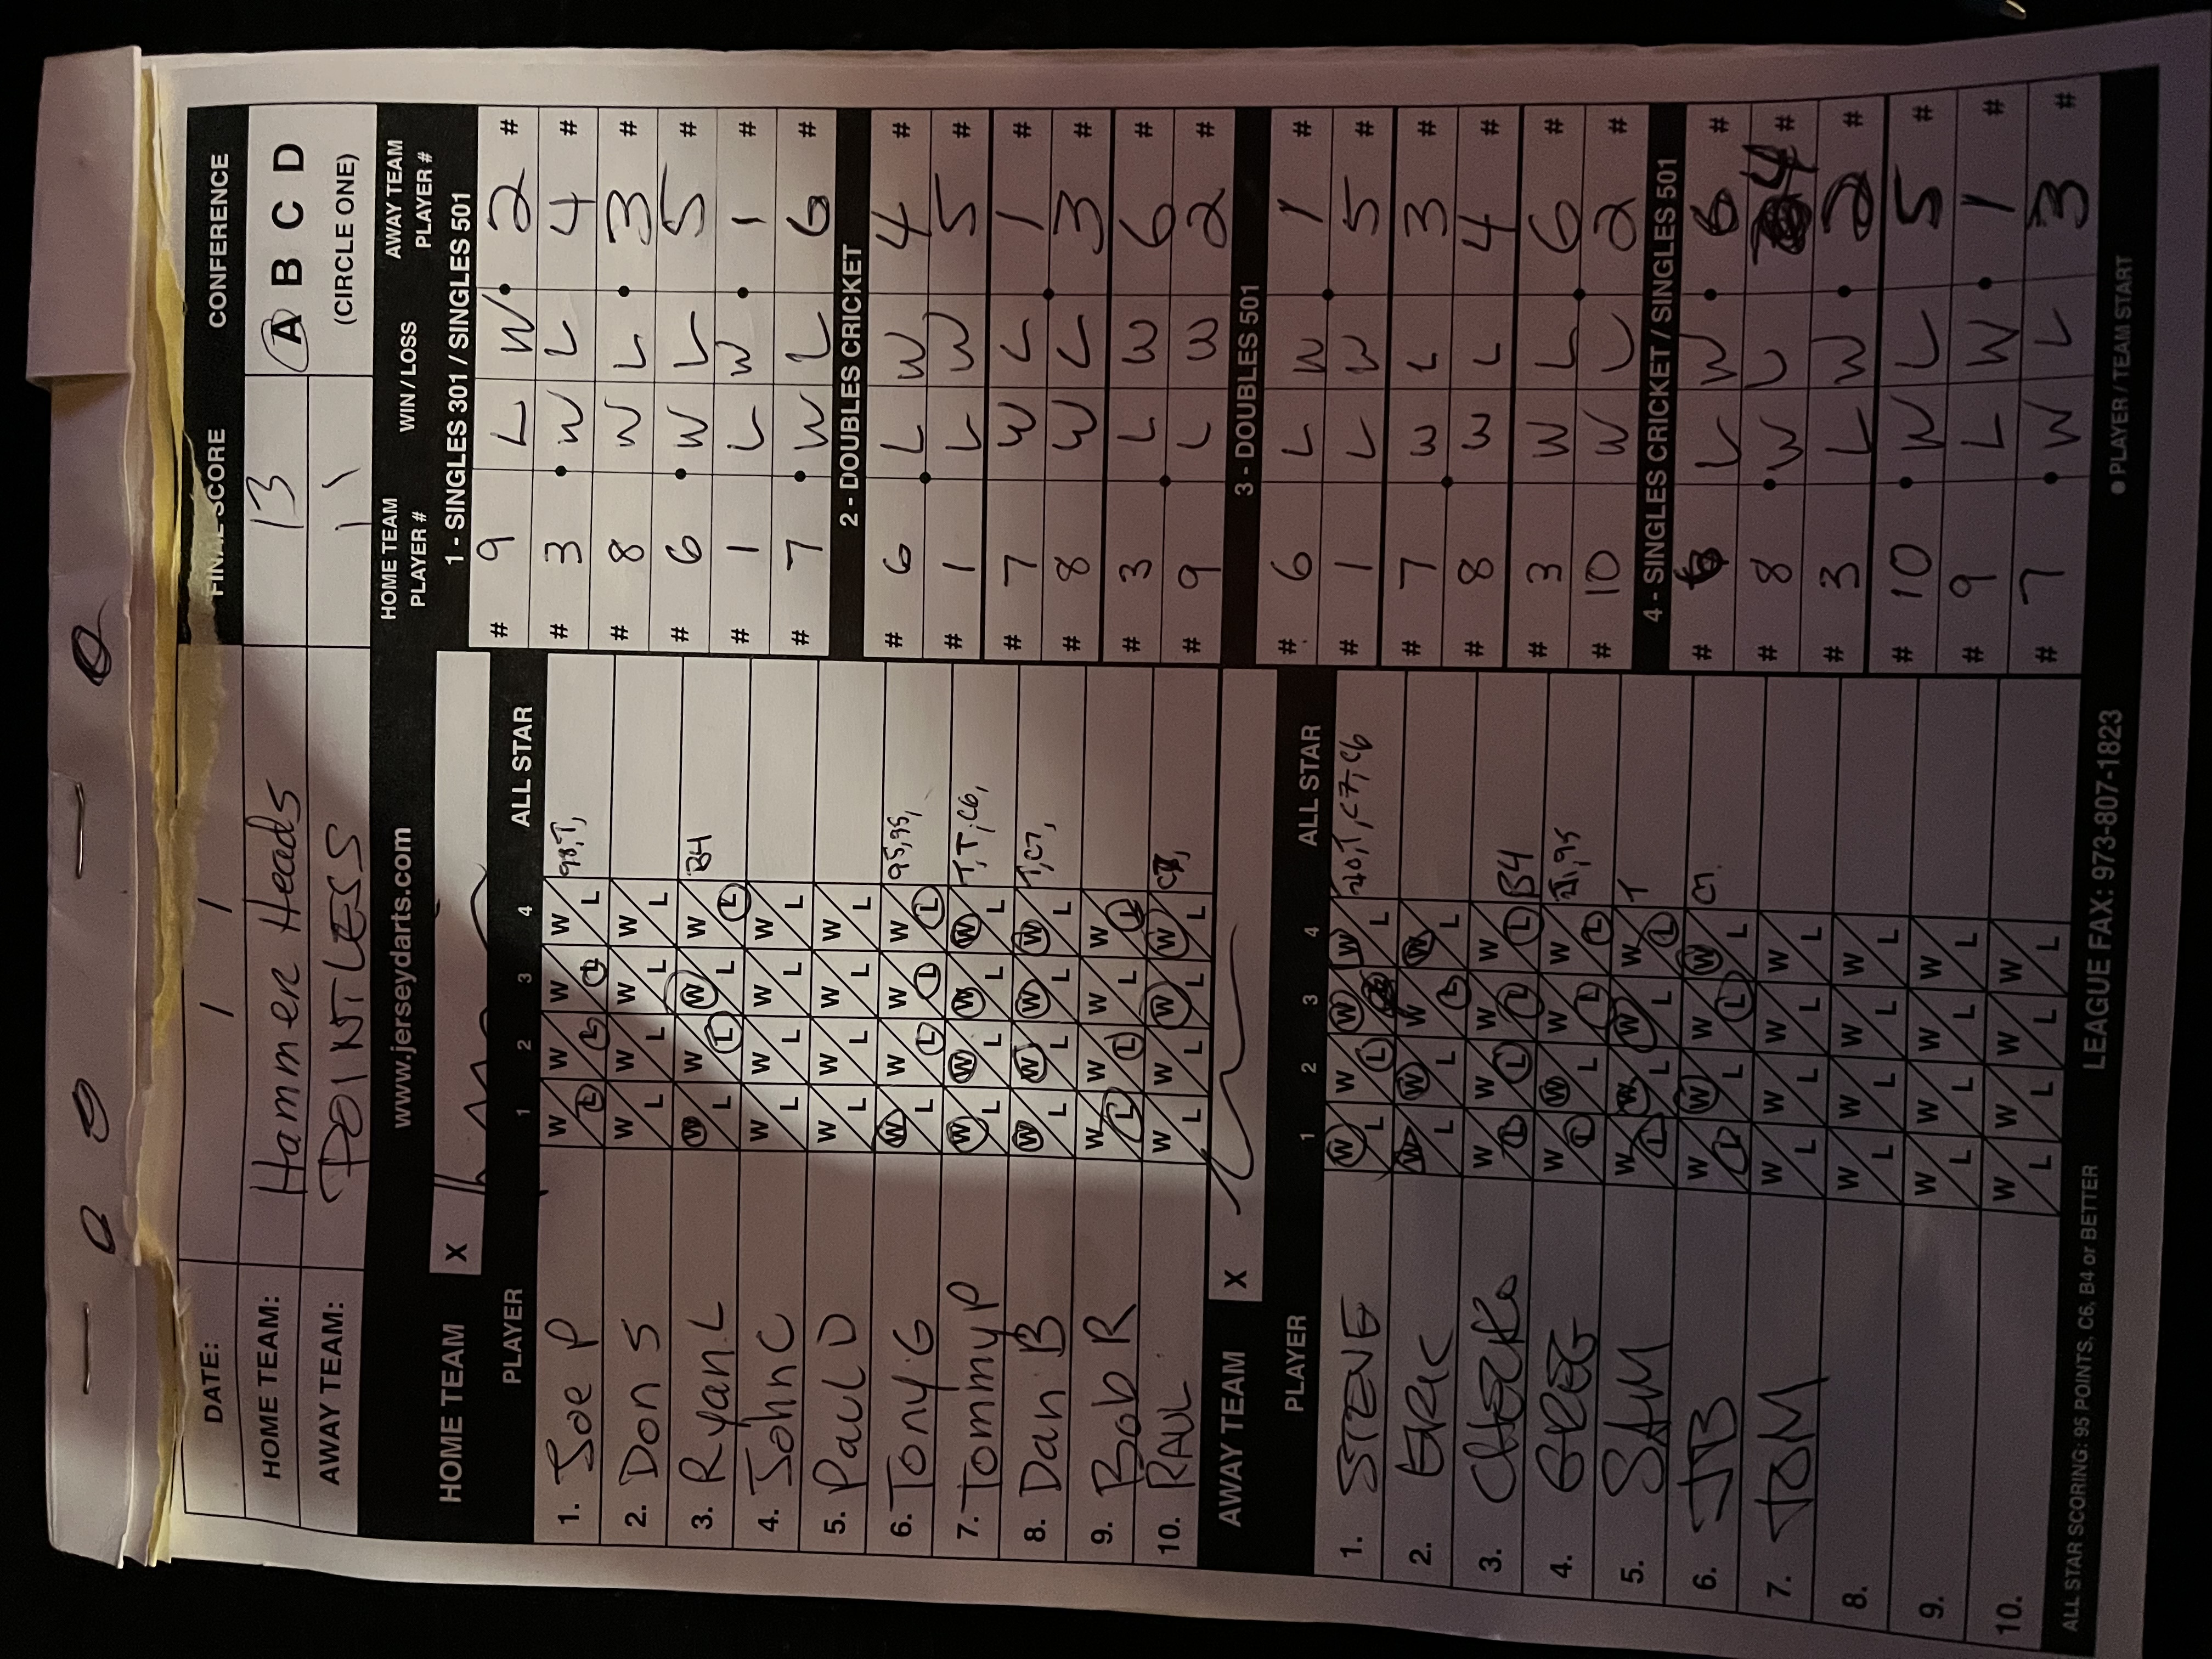 DATE: / /
FINAL SCORE
CONFERENCE
HOME TEAM: Hammer Heads 13
A B C D
AWAY TEAM: POINTLESS 11
(CIRCLE ONE)
www.jerseydarts.com
HOME TEAM X
PLAYER 1 2 3 4 ALL STAR
1. Joe P W L W L W L W L 98,T,
2. Don S W L W L W L W L
3. Ryan L W L W L W L W L B4
4. John C W L W L W L W L
5. Paul D W L W L W L W L
6. Tony G W L W L W L W L 95,95,
7. Tommy P W L W L W L W L T,T,C6,
8. Dan B W L W L W L W L T,C7,
9. Bob R W L W L W L W L
10. RAUL W L W L W L W L
AWAY TEAM X
PLAYER 1 2 3 4 ALL STAR
1. STEVE W L W L W L W L T,C7,C6
2. ERIC W L W L W L W L
3. W L W L W L W L B4
4. GREG W L W L W L W L 95
5. SAM W L W L W L W L T
6. JB W L W L W L W L
7. TOM W L W L W L W L
8. W L W L W L W L
9. W L W L W L W L
10. W L W L W L W L
ALL STAR SCORING: 95 POINTS, C6, B4 or BETTER
LEAGUE FAX: 973-807-1823
HOME TEAM PLAYER #
WIN / LOSS
AWAY TEAM PLAYER #
1 - SINGLES 301 / SINGLES 501
# 9 L W 2 #
# 3 W L 4 #
# 8 W L 3 #
# 6 W L 5 #
# 1 L W 1 #
# 7 W L 6 #
2 - DOUBLES CRICKET
# 6 L W 4 #
# 1 L W 5 #
# 7 W L 1 #
# 8 W L 3 #
# 3 L W 6 #
# 9 L W 2 #
3 - DOUBLES 501
# 6 L W 1 #
# 1 L W 5 #
# 7 W L 3 #
# 8 W L 4 #
# 3 W L 6 #
# 10 W L 2 #
4 - SINGLES CRICKET / SINGLES 501
# 6 L W 6 #
# 8 W L 4 #
# 3 L W 2 #
# 10 W L 5 #
# 9 L W 1 #
# 7 W L 3 #
● PLAYER / TEAM START